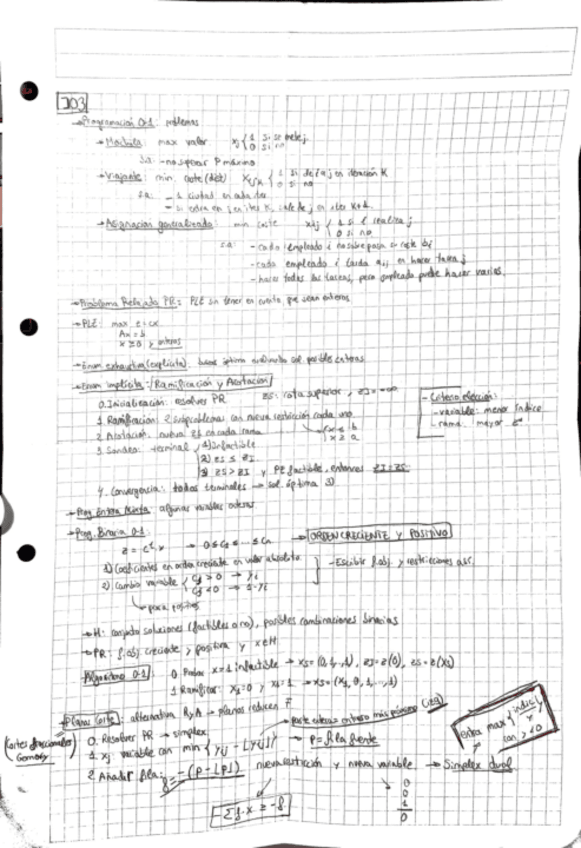 JO3
→ Programación 0-1: problemas
→ Mochila: max valor xj { 1 si se mete j. 0 si no
s.a: - no superar P máximo
→ Viajante: min. coste (dist) xijk { 1 si de i a j en iteración K 0 si no
s.a: - 1 ciudad en cada iter
- si entra en j en iter K, sale de j en iter K+1.
→ Asignación generalizada: min coste xij { 1 si i realiza j 0 si no
s.a: - cada empleado i no sobrepasa su coste bi
- cada empleado i tarda aij en hacer tarea j
- hacer todas las tareas, pero empleado puede hacer varias.
→ Problema Relajado PR: PLE sin tener en cuenta que sean enteros
→ PLE: max z = cx
Ax = b
x ≥ 0 y enteros
→ Enum exhaustiva (explícita): buscar óptimo sol. posibles enteras
→ Enum implícita: /Ramificación y Acotación/
0. Inicialización: resolver PR zs: cota superior, zI = -∞
1 Ramificación: 2 subproblemas con nueva restricción cada uno
x ≤ b
x ≥ a
2 Acotación: nueva zs en cada rama
3 Sondeo: terminal 1) Infactible
2) zs ≤ zI
3) zs > zI y PE factible, entonces zI = zs
- Criterio elección:
- variable: menor índice
- rama: mayor
4. Convergencia: todos terminales → sol. óptima 3)
→ Prog. Entera Mixta: algunas variables enteras
→ Prog. Binaria 0-1:
z = cᵗ·x → 0 ≤ c1 ≤ ... ≤ cn → ORDEN CRECIENTE Y POSITIVO
1) Coeficientes en orden creciente en valor absoluto
2) Cambio variable { cj > 0 → yi cj < 0 → 1-yi
- Escribir f.obj. y restricciones así.
para positivos
→ H: conjunto soluciones (factibles o no), posibles combinaciones binarias
→ PR: f.obj creciente y positiva y x∈H
Algoritmo 0-1: 0 Probar x=1 infactible → xs = (0,1,..,1), zI = z(0), zs = z(xs)
1 Ramificar: x1=0 y x1=1 → xs = (x1, 0, 1, ..., 1)
→ Planos Corte: alternativa RyA → planos reducen F
(Cortes fraccionales Gomory)
0. Resolver PR → simplex
parte entera = entero más próximo (izq)
1 xj variable con min { yij - [yij] } → p = fila fuente
2 Añadir fila: f = -(p - [p]) nueva restricción y nueva variable → Simplex dual
entra max { índice y con > < 0
0
0
1
0
-Σf·x ≥ -f.